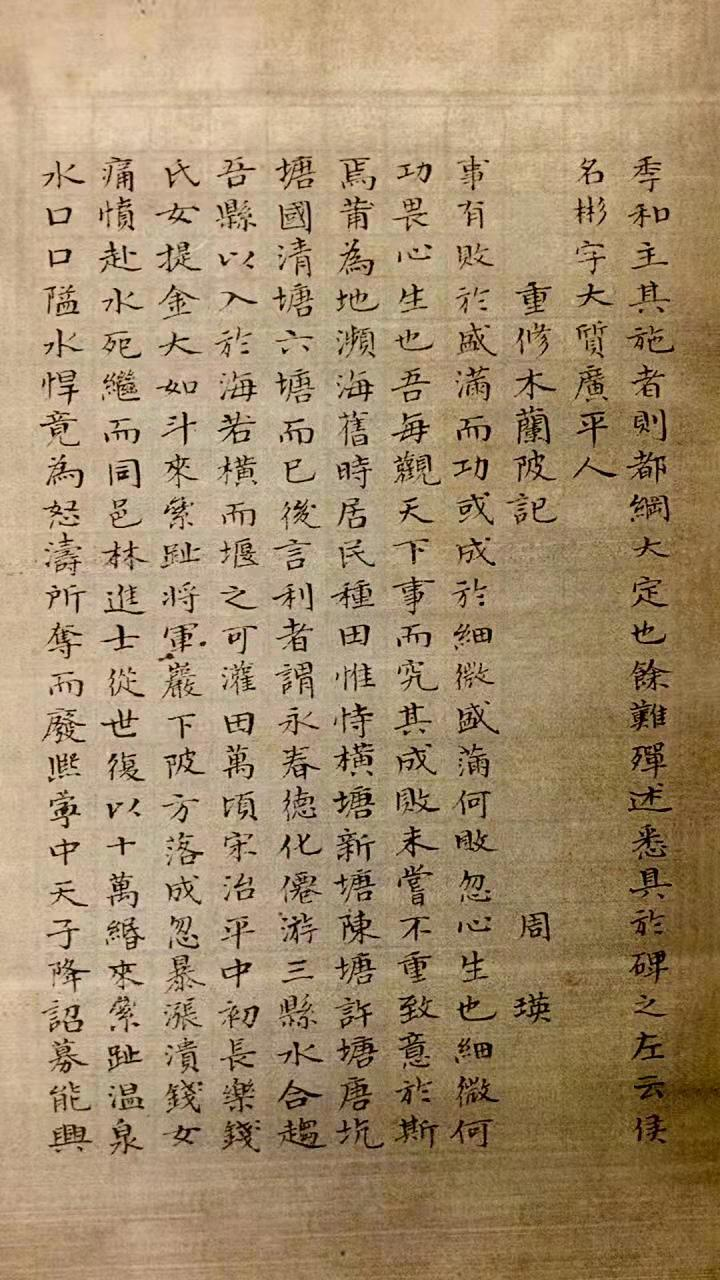 季和主其施者則都綱大定也餘難殫述悉具於碑之左云侯
名彬字大質廣平人
重修木蘭陂記 周瑛
事有敗於盛滿而功或成於細微盛滿何敗忽心生也細微何
功畏心生也吾每觀天下事而究其成敗未嘗不重致意於斯
焉莆為地瀕海舊時居民種田惟恃橫塘新塘陳塘許塘唐坑
塘國清塘六塘而已後言利者謂永春德化僊游三縣水合趨
吾縣以入於海若橫而堰之可灌田萬頃宋治平中初長樂錢
氏女提金大如斗來築趾將軍巖下陂方落成忽暴漲潰錢女
痛憤赴水死繼而同邑林進士從世復以十萬緡來築趾温泉
水口口隘水悍竟為怒濤所奪而廢熙寧中天子降詔募能興